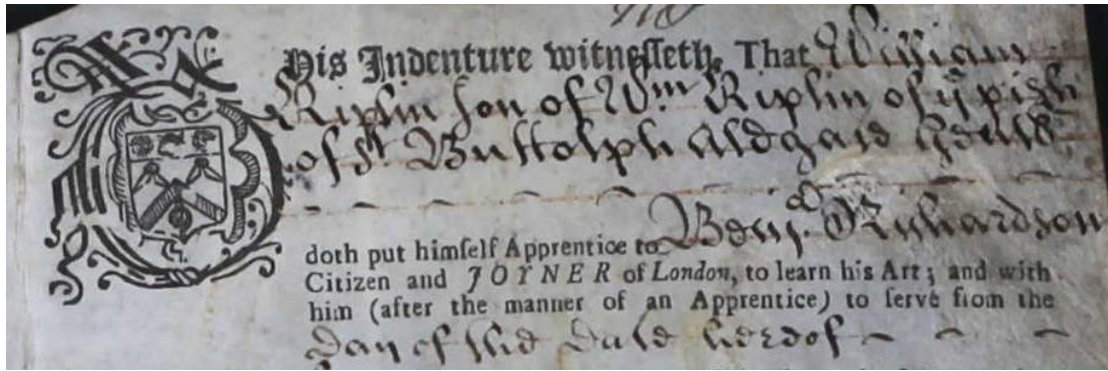 This Indenture witnesseth, That William
Riplin son of Wm Riplin of ye pish
of St Buttolph Aldgate
doth put himself Apprentice to Benj. Richardson
Citizen and JOYNER of London, to learn his Art; and with
him (after the manner of an Apprentice) to serve from the
Day of the Date hereof